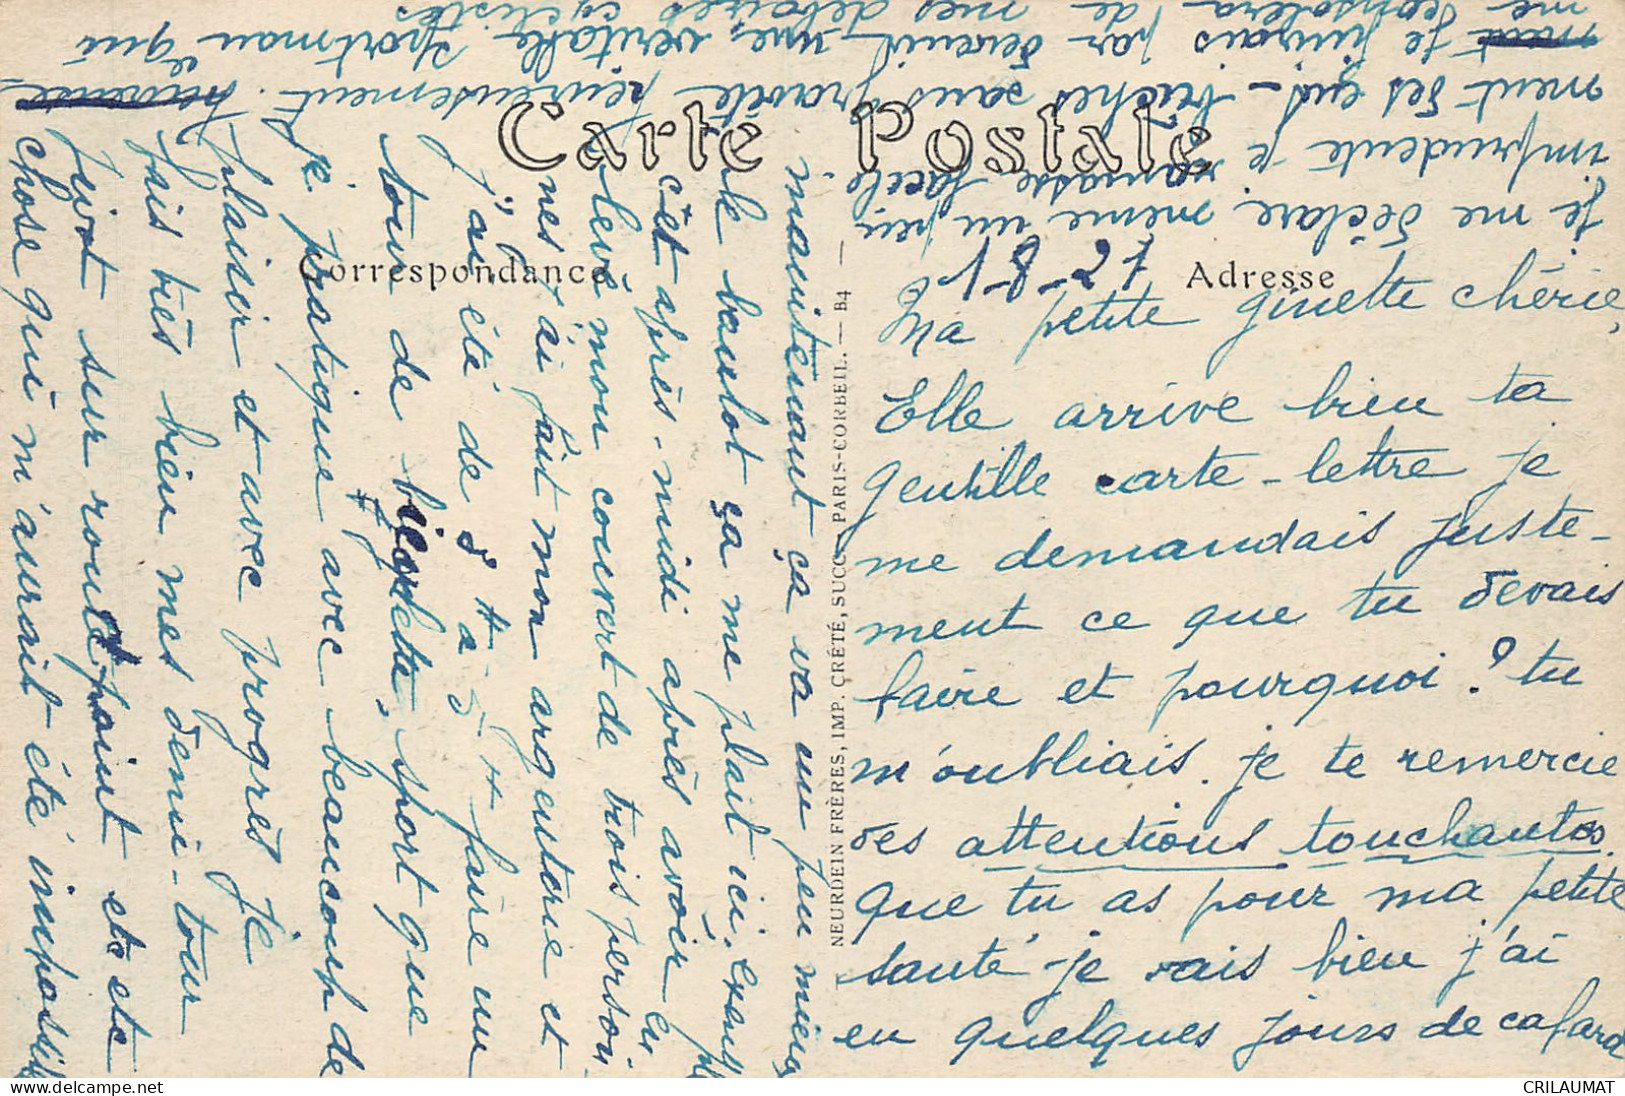 Carte Postale
Correspondance
Adresse
NEURDEIN FRÈRES, IMP. CRÉTÉ, SUCC. PARIS-CORBEIL. — B4 —
1-8-27
Ma petite ginette chérie,
Elle arrive bien ta
gentille carte-lettre je
me demandais juste-
ment ce que tu devais
faire et pourquoi? tu
m'oubliais. je te remercie
des attentions touchantes
que tu as pour ma petite
santé - je vais bien j'ai
eu quelques jours de cafard
maintenant ça va un peu mieux
le boulot ça me plait ici.
c'et après-midi après avoir en
levé mon couvert de trois person
nes j'ai fait mon argenterie et
j'ai été de 3 H à 5 H faire un
tour de bicyclette, sport que
je pratique avec beaucoup de
plaisir et avec progrès je
fais très bien mes demi-tour
pivot sur route point etc etc
chose qui m'aurait été impossible
je me déclare même un peu
imprudente je ramasse
ment des bûches sans gravité heureusement.
je finirais par devenir une véritable sportman qui
me consolera de mes déboires cyclistes
CRILAUMAT